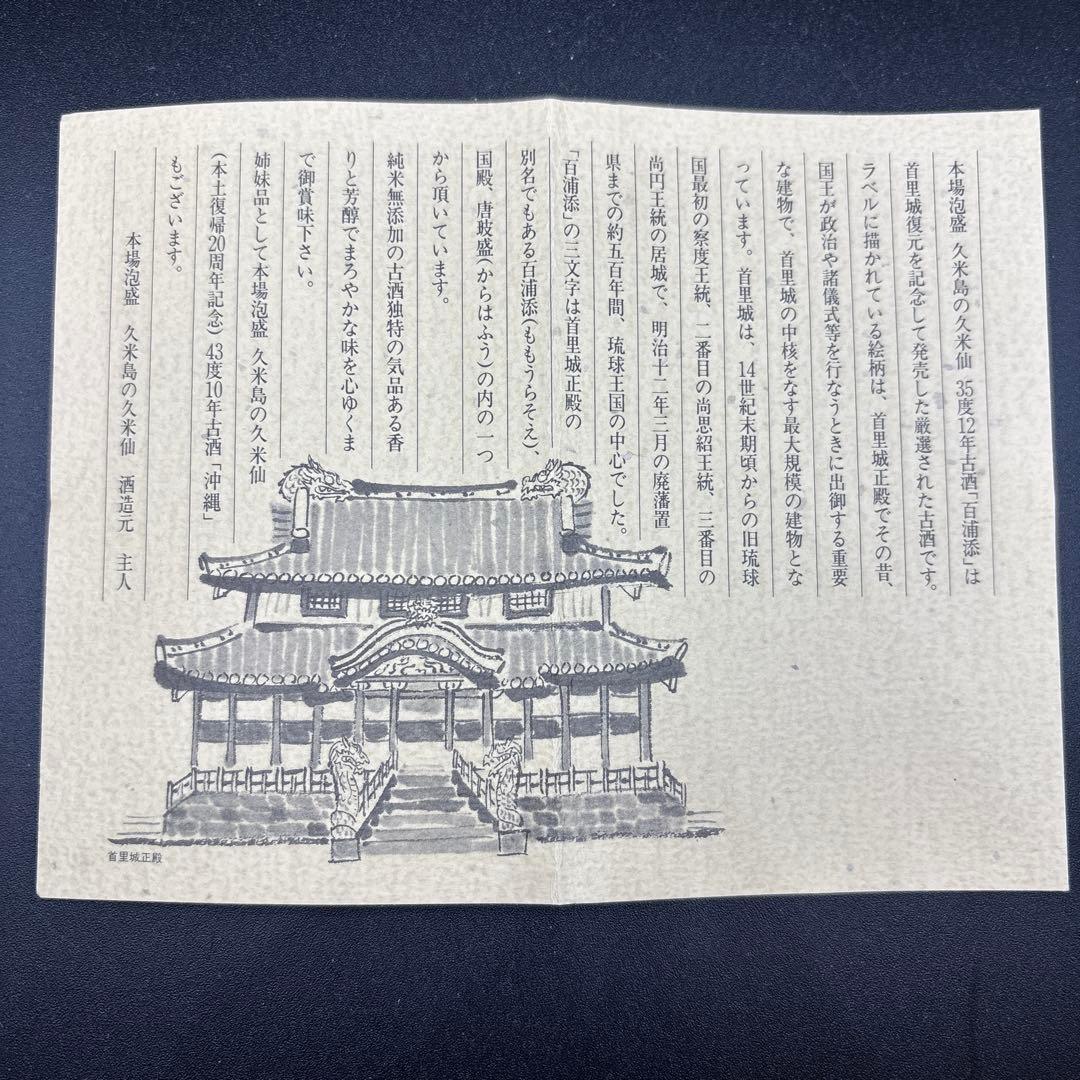 本場泡盛 久米島の久米仙 35度12年古酒「百浦添」は
首里城復元を記念して発売した厳選された古酒です。
ラベルに描かれている絵柄は、首里城正殿でその昔、
国王が政治や諸儀式等を行なうときに出御する重要
な建物で、首里城の中核をなす最大規模の建物とな
っています。首里城は、14世紀末期頃からの旧琉球
国最初の察度王統、二番目の尚思紹王統、三番目の
尚円王統の居城で、明治十二年三月の廃藩置
県までの約五百年間、琉球王国の中心でした。
「百浦添」の三文字は首里城正殿の
別名でもある百浦添(ももうらそえ)、
国殿、唐玻盛(からはふう)の内の一つ
から頂いています。
純米無添加の古酒独特の気品ある香
りと芳醇でまろやかな味を心ゆくま
で御賞味下さい。
姉妹品として本場泡盛 久米島の久米仙
(本土復帰20周年記念) 43度10年古酒「沖縄」
もございます。
本場泡盛 久米島の久米仙 酒造元 主人
首里城正殿